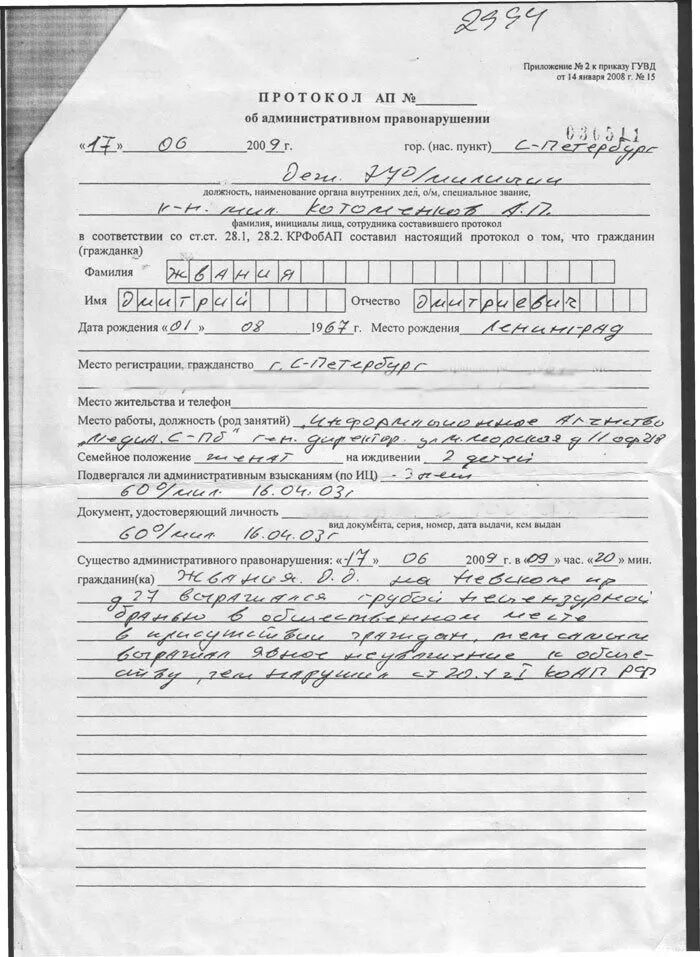 2994
Приложение № 2 к приказу ГУВД
от 14 января 2008 г. № 15
ПРОТОКОЛ АП №
об административном правонарушении
030511
«17» 06 2009 г. гор. (нас. пункт) С-Петербург
Деж. 27 О/милиции
должность, наименование органа внутренних дел, о/м, специальное звание,
к-н. мил. Котоменков А.П.
фамилия, инициалы лица, сотрудника составившего протокол
в соответствии со ст.ст. 28.1, 28.2. КРФобАП составил настоящий протокол о том, что гражданин
(гражданка)
Фамилия ЖВАНИЯ
Имя ДМИТРИЙ Отчество ДМИТРИЕВИЧ
Дата рождения «01» 08 1967 г. Место рождения Ленинград
Место регистрации, гражданство г. С-Петербург
Место жительства и телефон
Место работы, должность (род занятий) Информационное Агенство
"Медиа. С-Пб" ген. директор. ул М. Морская д 11 оф 218
Семейное положение женат на иждивении 2 детей
Подвергался ли административным взысканиям (по ИЦ) -
60 О/мил. 16.04.03г
Документ, удостоверяющий личность
вид документа, серия, номер, дата выдачи, кем выдан
60 О/мил. 16.04.03г
Существо административного правонарушения: «17» 06 2009 г. в «09» час. «20» мин.
гражданин(ка) Жвания. Д.Д. на Невском пр
д 27 выражался грубой нецензурной
бранью в общественном месте
в присутствии граждан, тем самым
выражал явное неуважение к обще-
ству, чем нарушил ст 20.1 ч I КоАП РФ